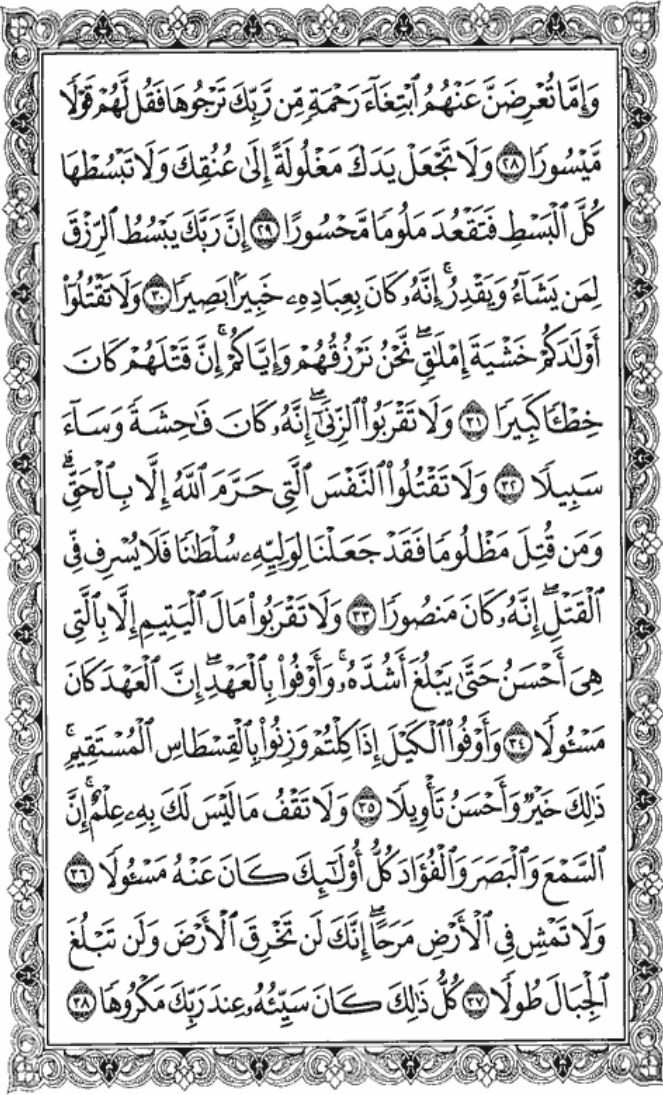 وَإِمَّا تُعْرِضَنَّ عَنْهُمُ ٱبْتِغَآءَ رَحْمَةٍ مِّن رَّبِّكَ تَرْجُوهَا فَقُل لَّهُمْ قَوْلًا
مَّيْسُورًا ٢٨ وَلَا تَجْعَلْ يَدَكَ مَغْلُولَةً إِلَىٰ عُنُقِكَ وَلَا تَبْسُطْهَا
كُلَّ ٱلْبَسْطِ فَتَقْعُدَ مَلُومًا مَّحْسُورًا ٢٩ إِنَّ رَبَّكَ يَبْسُطُ ٱلرِّزْقَ
لِمَن يَشَآءُ وَيَقْدِرُ ۚ إِنَّهُۥ كَانَ بِعِبَادِهِۦ خَبِيرًۢا بَصِيرًا ٣٠ وَلَا تَقْتُلُوٓا۟
أَوْلَـٰدَكُمْ خَشْيَةَ إِمْلَـٰقٍ ۖ نَّحْنُ نَرْزُقُهُمْ وَإِيَّاكُمْ ۚ إِنَّ قَتْلَهُمْ كَانَ
خِطْـًٔا كَبِيرًا ٣١ وَلَا تَقْرَبُوا۟ ٱلزِّنَىٰٓ ۖ إِنَّهُۥ كَانَ فَـٰحِشَةً وَسَآءَ
سَبِيلًا ٣٢ وَلَا تَقْتُلُوا۟ ٱلنَّفْسَ ٱلَّتِى حَرَّمَ ٱللَّهُ إِلَّا بِٱلْحَقِّ ۗ
وَمَن قُتِلَ مَظْلُومًا فَقَدْ جَعَلْنَا لِوَلِيِّهِۦ سُلْطَـٰنًا فَلَا يُسْرِف فِّى
ٱلْقَتْلِ ۖ إِنَّهُۥ كَانَ مَنصُورًا ٣٣ وَلَا تَقْرَبُوا۟ مَالَ ٱلْيَتِيمِ إِلَّا بِٱلَّتِى
هِىَ أَحْسَنُ حَتَّىٰ يَبْلُغَ أَشُدَّهُۥ ۚ وَأَوْفُوا۟ بِٱلْعَهْدِ ۖ إِنَّ ٱلْعَهْدَ كَانَ
مَسْـُٔولًا ٣٤ وَأَوْفُوا۟ ٱلْكَيْلَ إِذَا كِلْتُمْ وَزِنُوا۟ بِٱلْقِسْطَاسِ ٱلْمُسْتَقِيمِ ۚ
ذَٰلِكَ خَيْرٌ وَأَحْسَنُ تَأْوِيلًا ٣٥ وَلَا تَقْفُ مَا لَيْسَ لَكَ بِهِۦ عِلْمٌ ۚ إِنَّ
ٱلسَّمْعَ وَٱلْبَصَرَ وَٱلْفُؤَادَ كُلُّ أُو۟لَـٰٓئِكَ كَانَ عَنْهُ مَسْـُٔولًا ٣٦
وَلَا تَمْشِ فِى ٱلْأَرْضِ مَرَحًا ۖ إِنَّكَ لَن تَخْرِقَ ٱلْأَرْضَ وَلَن تَبْلُغَ
ٱلْجِبَالَ طُولًا ٣٧ كُلُّ ذَٰلِكَ كَانَ سَيِّئُهُۥ عِندَ رَبِّكَ مَكْرُوهًا ٣٨